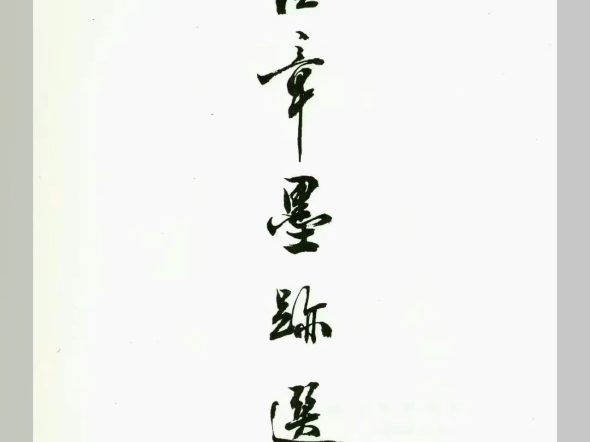 章墨跡選